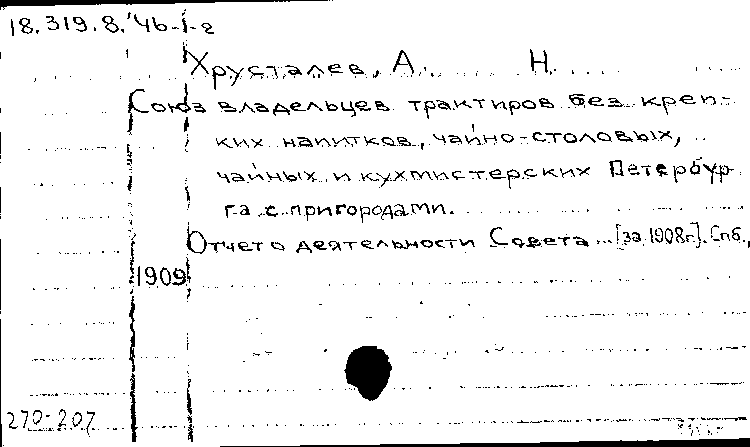 18.319.8.'46-1-2
Хрусталев, А. Н.
Союз владельцев трактиров без креп-
ких напитков, чайно-столовых,
чайных и кухмистерских Петербур
га с пригородами.
Отчет о деятельности Совета...[за 1908г]. Спб.,
1909
270-207